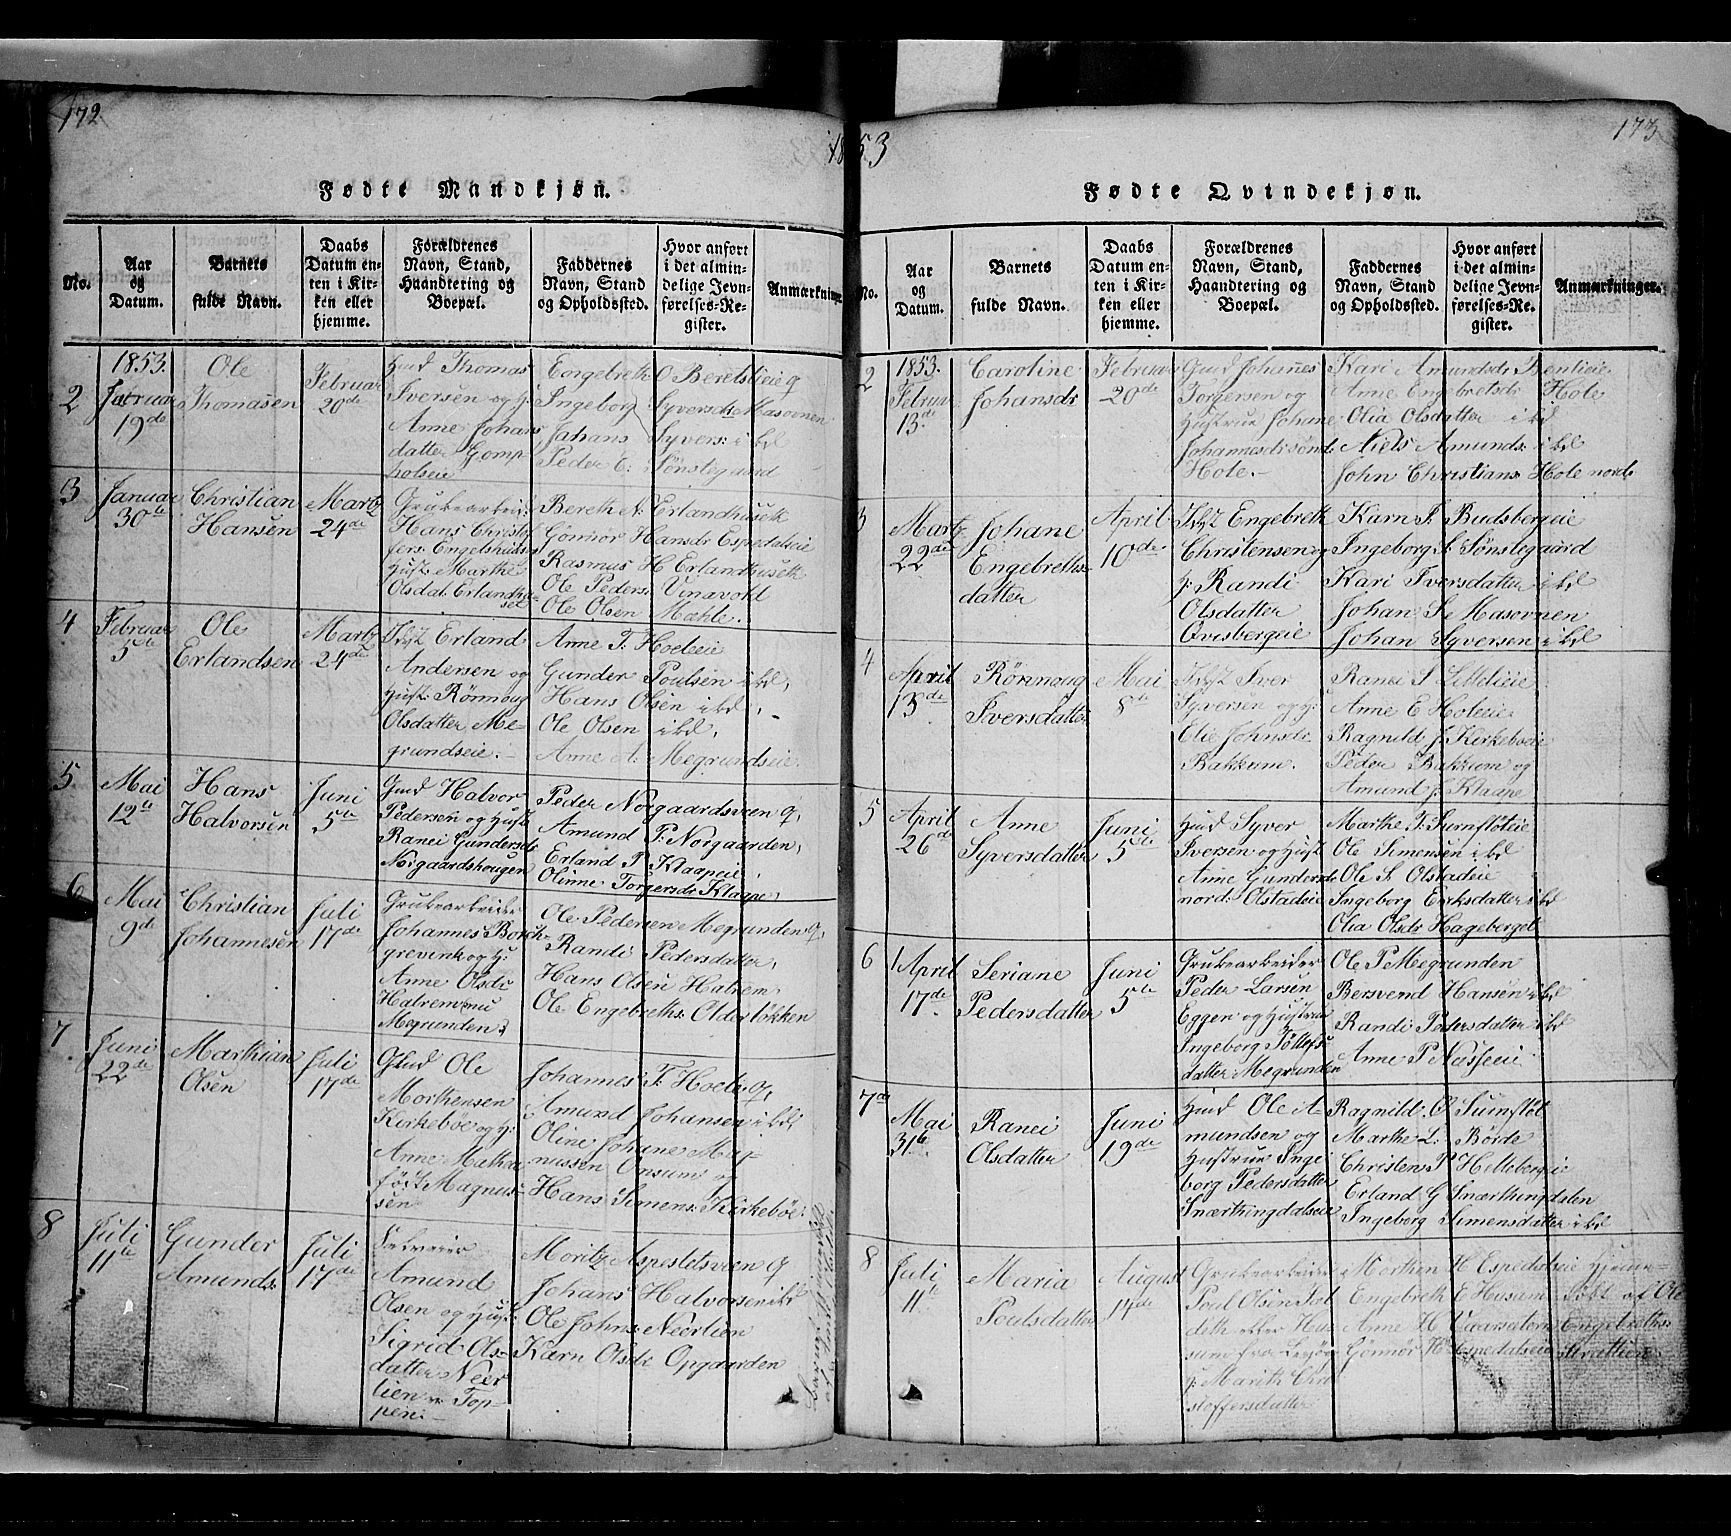 172
1853
173
Fødte Mandkjøn.
No.
Aar og Datum.
Barnets fulde Navn.
Daabs Datum enten i Kirken eller hjemme.
Forældrenes Navn, Stand, Haandtering og Boepæl.
Faddernes Navn, Stand og Opholdssted.
Hvor anført i det almindelige Jevnførelses-Register.
Anmærkninger.
2
1853.
Januar
19de
Ole
Thomasen
Februar
20de
Gmd Thomas
Iversen og h:
Anne Johans
datter Gomp
holseie
Engebreth O Berelseie q
Ingeborg Syversdr Masovnen
Johans Syvers: ibd
Peder E: Sønstegaard
3
Januar
30te
Christian
Hansen
Martz
24de
Grubearbeid:
Hans Christof
fers: Engelshus
Hust: Marthe
Olsdat. Erlandhu-
set
Bereth N: Erlandhuseth
Gønnor Hansdr Espedalseie
Rasmus H Erlandhuseth
Ole Peders: Vinavohl
Ole Olsen Mæhle.
4
Februar
5te
Ole
Erlandsen
Martz
24de
Inst Erland
Andersen og
Hust: Rønnoug
Olsdatter Me-
grundseie.
Anne T: Hoeleie
Gunder Poulsen ibd,
Hans Olsen ibd,
Ole Olsen ibd,
Anne A: Megrundseie.
5
Mai
12te
Hans
Halvorsen
Juni
5te
Gmd Halvor
Pedersen og Hust
Ranei Gundersdr
Norgaardshougen
Peder Norgaardsveen q,
Amund P: Norgaarden,
Erland P Klaapeie,
Olinne Torgersdr Klaape,
6
Mai
9de
Christian
Johannesen
Juli
17de
Grubearbeider
Johannes Borch-
grevink og h:
Anne Olsdr
Halrem nu
Megrunden
Ole Pedersen Megrunden q,
Randi Pedersdatter,
Hans Olsen Halrem
Ole Engebreths: Olderløkken
7
Juni
22de
Mathian
Olsen
Juli
17de
Gmd Ole
Morthensen
Kirkebøe og h:
Anne Mathea
født Magnus-
sen
Johannes T: Hoele q,
Amund Johansen ibd,
Oline Johane Maj-
nussen Onsum og
Hans Simens: Kirkebøe
8
Juli
11te
Gunder
Amunds:
Juli
17de
Leieier
Amund
Olsen og Hust:
Sigrid Ols-
datter Neer
lien v: Top-
pen
Moritz Aspesletsveen q
Johans Halvorsen ibd
Ole Johns: Neerlien
Karn Olsdr Opgaarden
Fødte Qvindekjøn.
No.
Aar og Datum.
Barnets fulde Navn.
Daabs Datum enten i Kirken eller hjemme.
Forældrenes Navn, Stand, Haandtering og Boepæl.
Faddernes Navn, Stand og Opholdssted.
Hvor anført i det almindelige Jevnførelses-Register.
Anmærkninger.
2
1853.
Februar
13de
Caroline
Johansdr
Februar
20de
Gmd Johannes
Torgersen og
Hustrue Johane
Johannesdr søndr
Hole.
Kari Amundsdr Bentieie
Anne Engebretsdr Hole
Olia Olsdatter ibd
Niels Amunds: ibd
John Christians: Hole nordr
3
Martz
22de
Johane
Engebreths-
datter
April
10de
Inst Engebreth
Christensen og
h: Randi
Olsdatter
Qvisbergeie
Karn I: Budsbergeie
Ingeborg S: Sønstegaard
Kari Iversdatter ibd
Johan S: Masovnen
Johan Syversen ibd
4
April
13de
Rønnoug
Iversdatter
Mai
8de
Inst Iver
Syversen og h:
Elie Johnsdr
Bakkum.
Ranei S Lilleleie
Anne E Holeeie
Ragnild J: Kirkebøeie
Peder Bakkum og
Amund J: Klaape
5
April
26de
Anne
Syversdatter
Juni
5te
Hmd Syver
Iversen og Hust
Anne Gundersdr
nord: Olstadeie
Marthe T: Surnfløteie
Ole Simensen ibd
Ole S. Olstadeie
Ingeborg Eriksdatter ibd
Olia Olsdr Hageberget
6
April
17de
Seriane
Pedersdatter
Juni
5te
Grubearbeider
Peder Larsen
Eggen og Hustrue
Ingeborg Tollefs
datter Megrunden
Ole P Megrunden
Bersvend Hansen ibd
Randi Pedersdatter ibd
Anne P Næsseie
7de
Mai
31te
Ranei
Olsdatter
Juni
19de
Hmd Ole A-
mundsen og
Hustrue Inge
borg Pedersdatter
Snærthingdalseie
Ragnild. O Surnfløt
Marthe L: Børde
Christen P Hellebergeie
Erland G Snærthingdalen
Ingeborg Simensdatter ibd
8
Juli
11te
Maria
Poulsdatter
August
14de
Grubearbeider
Poul Olsen
h: Marith Chri
stoffersdatter
Morthen H Espedalseie
Engebreth E Husum
Anne H
Gønnor H Espedalseie
Hjemme-
døbt af Ole
Engebreths: